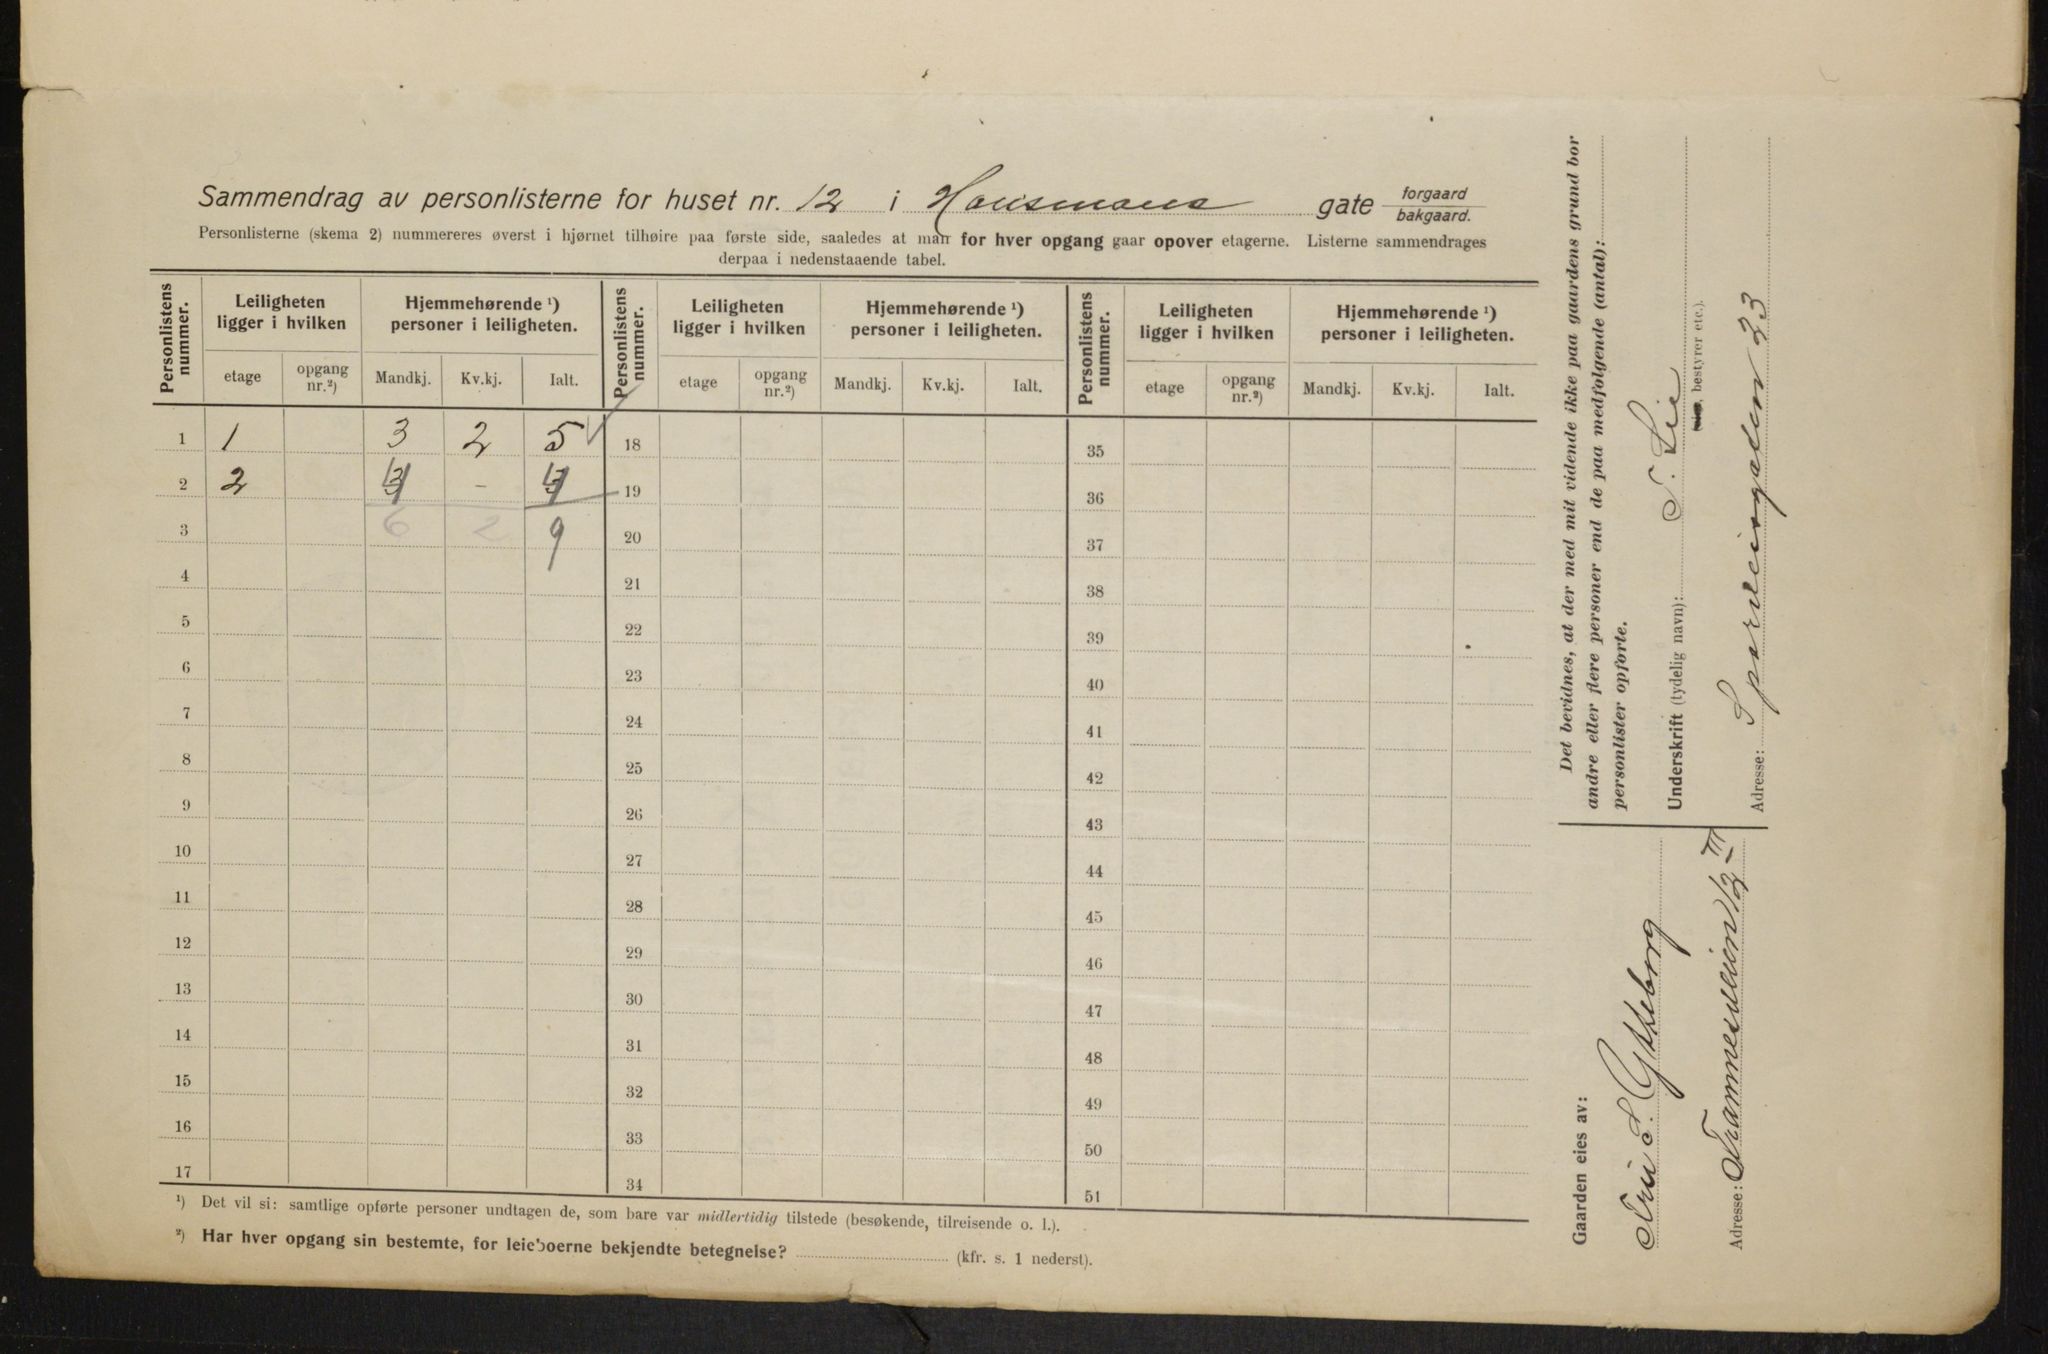 Sammendrag av personlisterne for huset nr. 12 i Hausmans gate forgaard
bakgaard.
Personlisterne (skema 2) nummereres øverst i hjørnet tilhøire paa første side, saaledes at man for hver opgang gaar opover etagerne. Listerne sammendrages
derpaa i nedenstaaende tabel.
Personlistens nummer. Leiligheten ligger i hvilken Hjemmehørende ¹) personer i leiligheten. Personlistens nummer. Leiligheten ligger i hvilken Hjemmehørende ¹) personer i leiligheten. Personlistens nummer. Leiligheten ligger i hvilken Hjemmehørende ¹) personer i leiligheten.
etage opgang nr.²) Mandkj. Kv.kj. Ialt. etage opgang nr.²) Mandkj. Kv.kj. Ialt. etage opgang nr.²) Mandkj. Kv.kj. Ialt.
1 1 3 2 5 18 35
2 2 4 - 4 19 36
3 6 2 9 20 37
4 21 38
5 22 39
6 23 40
7 24 41
8 25 42
9 26 43
10 27 44
11 28 45
12 29 46
13 30 47
14 31 48
15 32 49
16 33 50
17 34 51
¹) Det vil si: samtlige opførte personer undtagen de, som bare var midlertidig tilstede (besøkende, tilreisende o. l.).
²) Har hver opgang sin bestemte, for leieboerne bekjendte betegnelse? (kfr. s. 1 nederst).
Det bevidnes, at der med mit vidende ikke paa gaardens grund bor
andre eller flere personer end de paa medfølgende (antal):
personlister opførte.
Underskrift (tydelig navn): S. Lie
, bestyrer etc.).
Adresse: Sporveisgaten 33
Gaarden eies av:
Fru S. Gykeborg
Adresse: Trammesveien 12 III